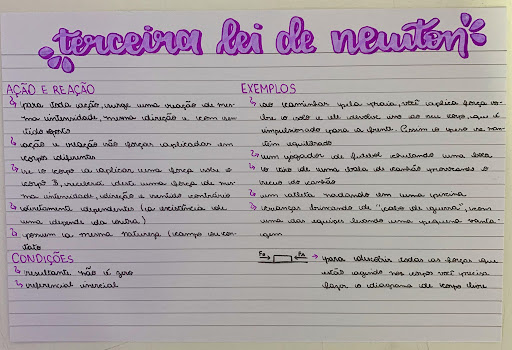 terceira lei de newton
AÇÃO E REAÇÃO
↳ para toda ação, surge uma reação de mes-
ma intensidade, mesma direção e com sen-
tido oposto
↳ ação e reação são forças aplicadas em
corpos diferentes
↳ se o corpo A aplicar uma força sobre o
corpo B, receberá deste uma força de mes-
ma intensidade, direção e sentido contrário
↳ diretamente dependentes (a existência de
uma depende da outra)
↳ possuem a mesma natureza (campo ou con-
tato
CONDIÇÕES
↳ resultante não é zero
↳ referencial inercial
EXEMPLOS
↳ ao caminhar pela praia, você aplica força so-
bre o solo e ele devolve no seu corpo, que é
impulsionado para a frente. o se man-
tém equilibrado
↳ um jogador de futebol chutando uma bola
↳ o tiro de uma bala de canhão provocando o
recuo do canhão
↳ um atleta nadando em uma piscina
↳ crianças brincando de "cabo de guerra", com
uma das equipes levando uma pequena vanta-
gem
→ para descobrir todas as forças que
estão agindo nos corpos você precisa
fazer o diagrama de corpo livre